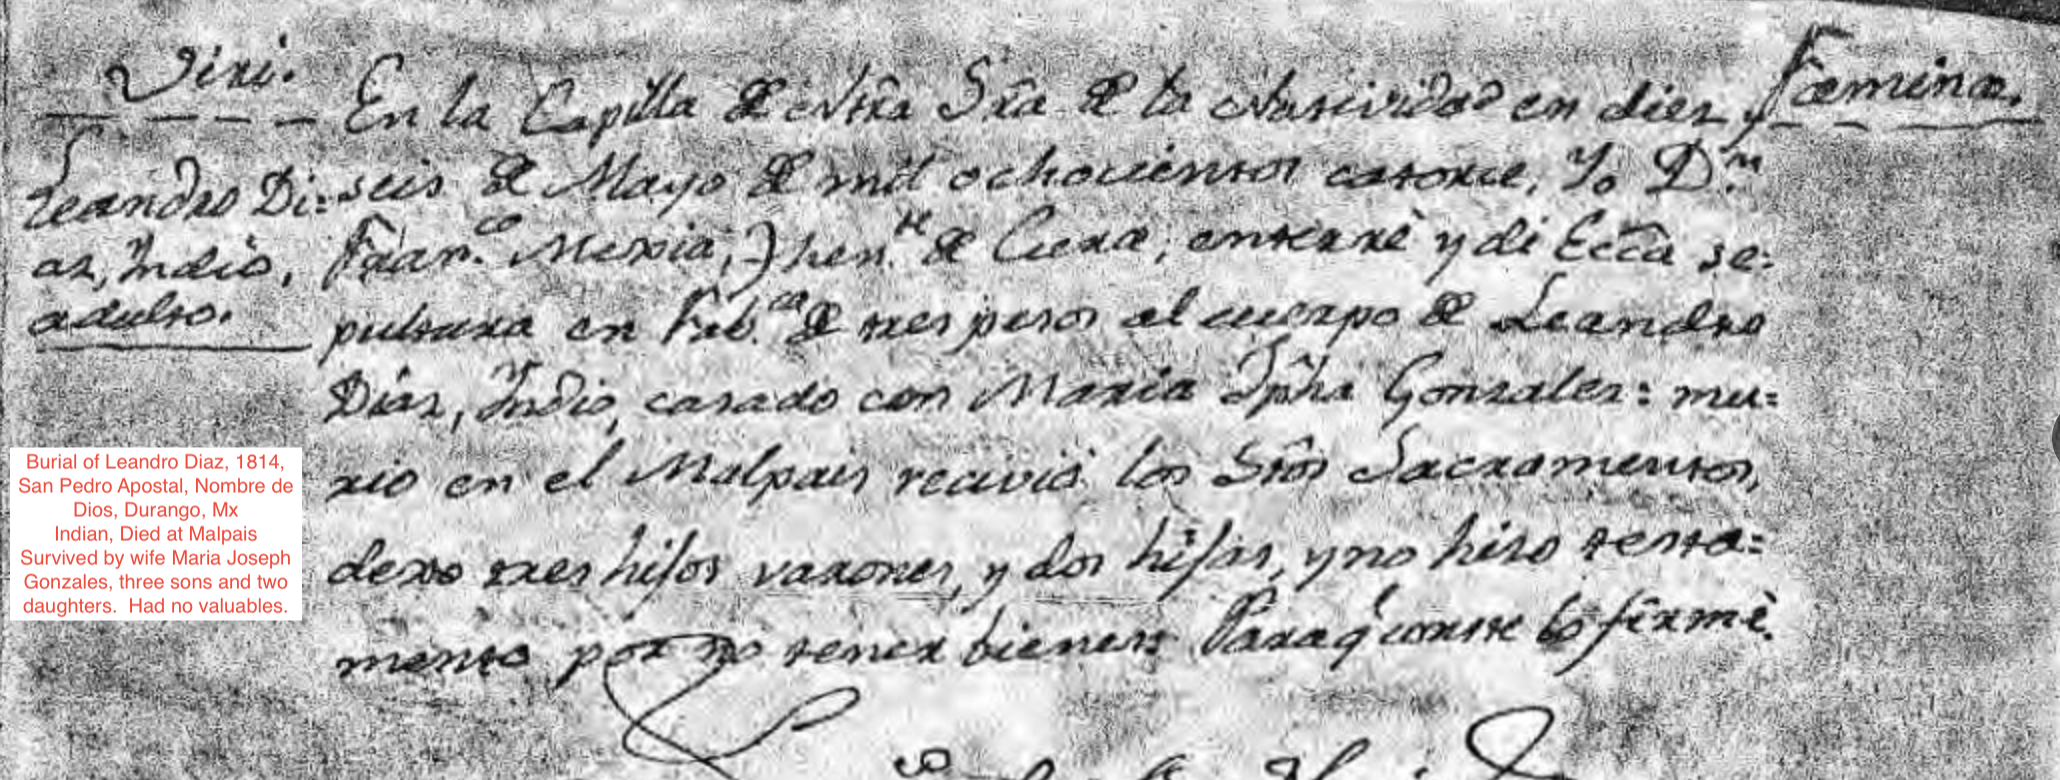 Viri.
Leandro Di=
az, Yndio,
adulto.
En la Capilla de Ntra Sra de la Natividad en diez y
seis de Mayo de mil ochocientos catorce, Yo Dn.
Franco. Mexia, Thente. de Cura, enterré y di Ecca se=
pultura en Fab.ca de tres pesos al cuerpo de Leandro
Diaz, Yndio, casado con Maria Jpha Gonzales: mu=
rio en el Malpais recivió los Stos Sacramentos,
dexo tres hijos varones, y dos hijas, y no hizo testa=
mento por no tener bienes: Para q conste lo firmé.
Fæminæ.
Burial of Leandro Diaz, 1814,
San Pedro Apostal, Nombre de
Dios, Durango, Mx
Indian, Died at Malpais
Survived by wife Maria Joseph
Gonzales, three sons and two
daughters. Had no valuables.